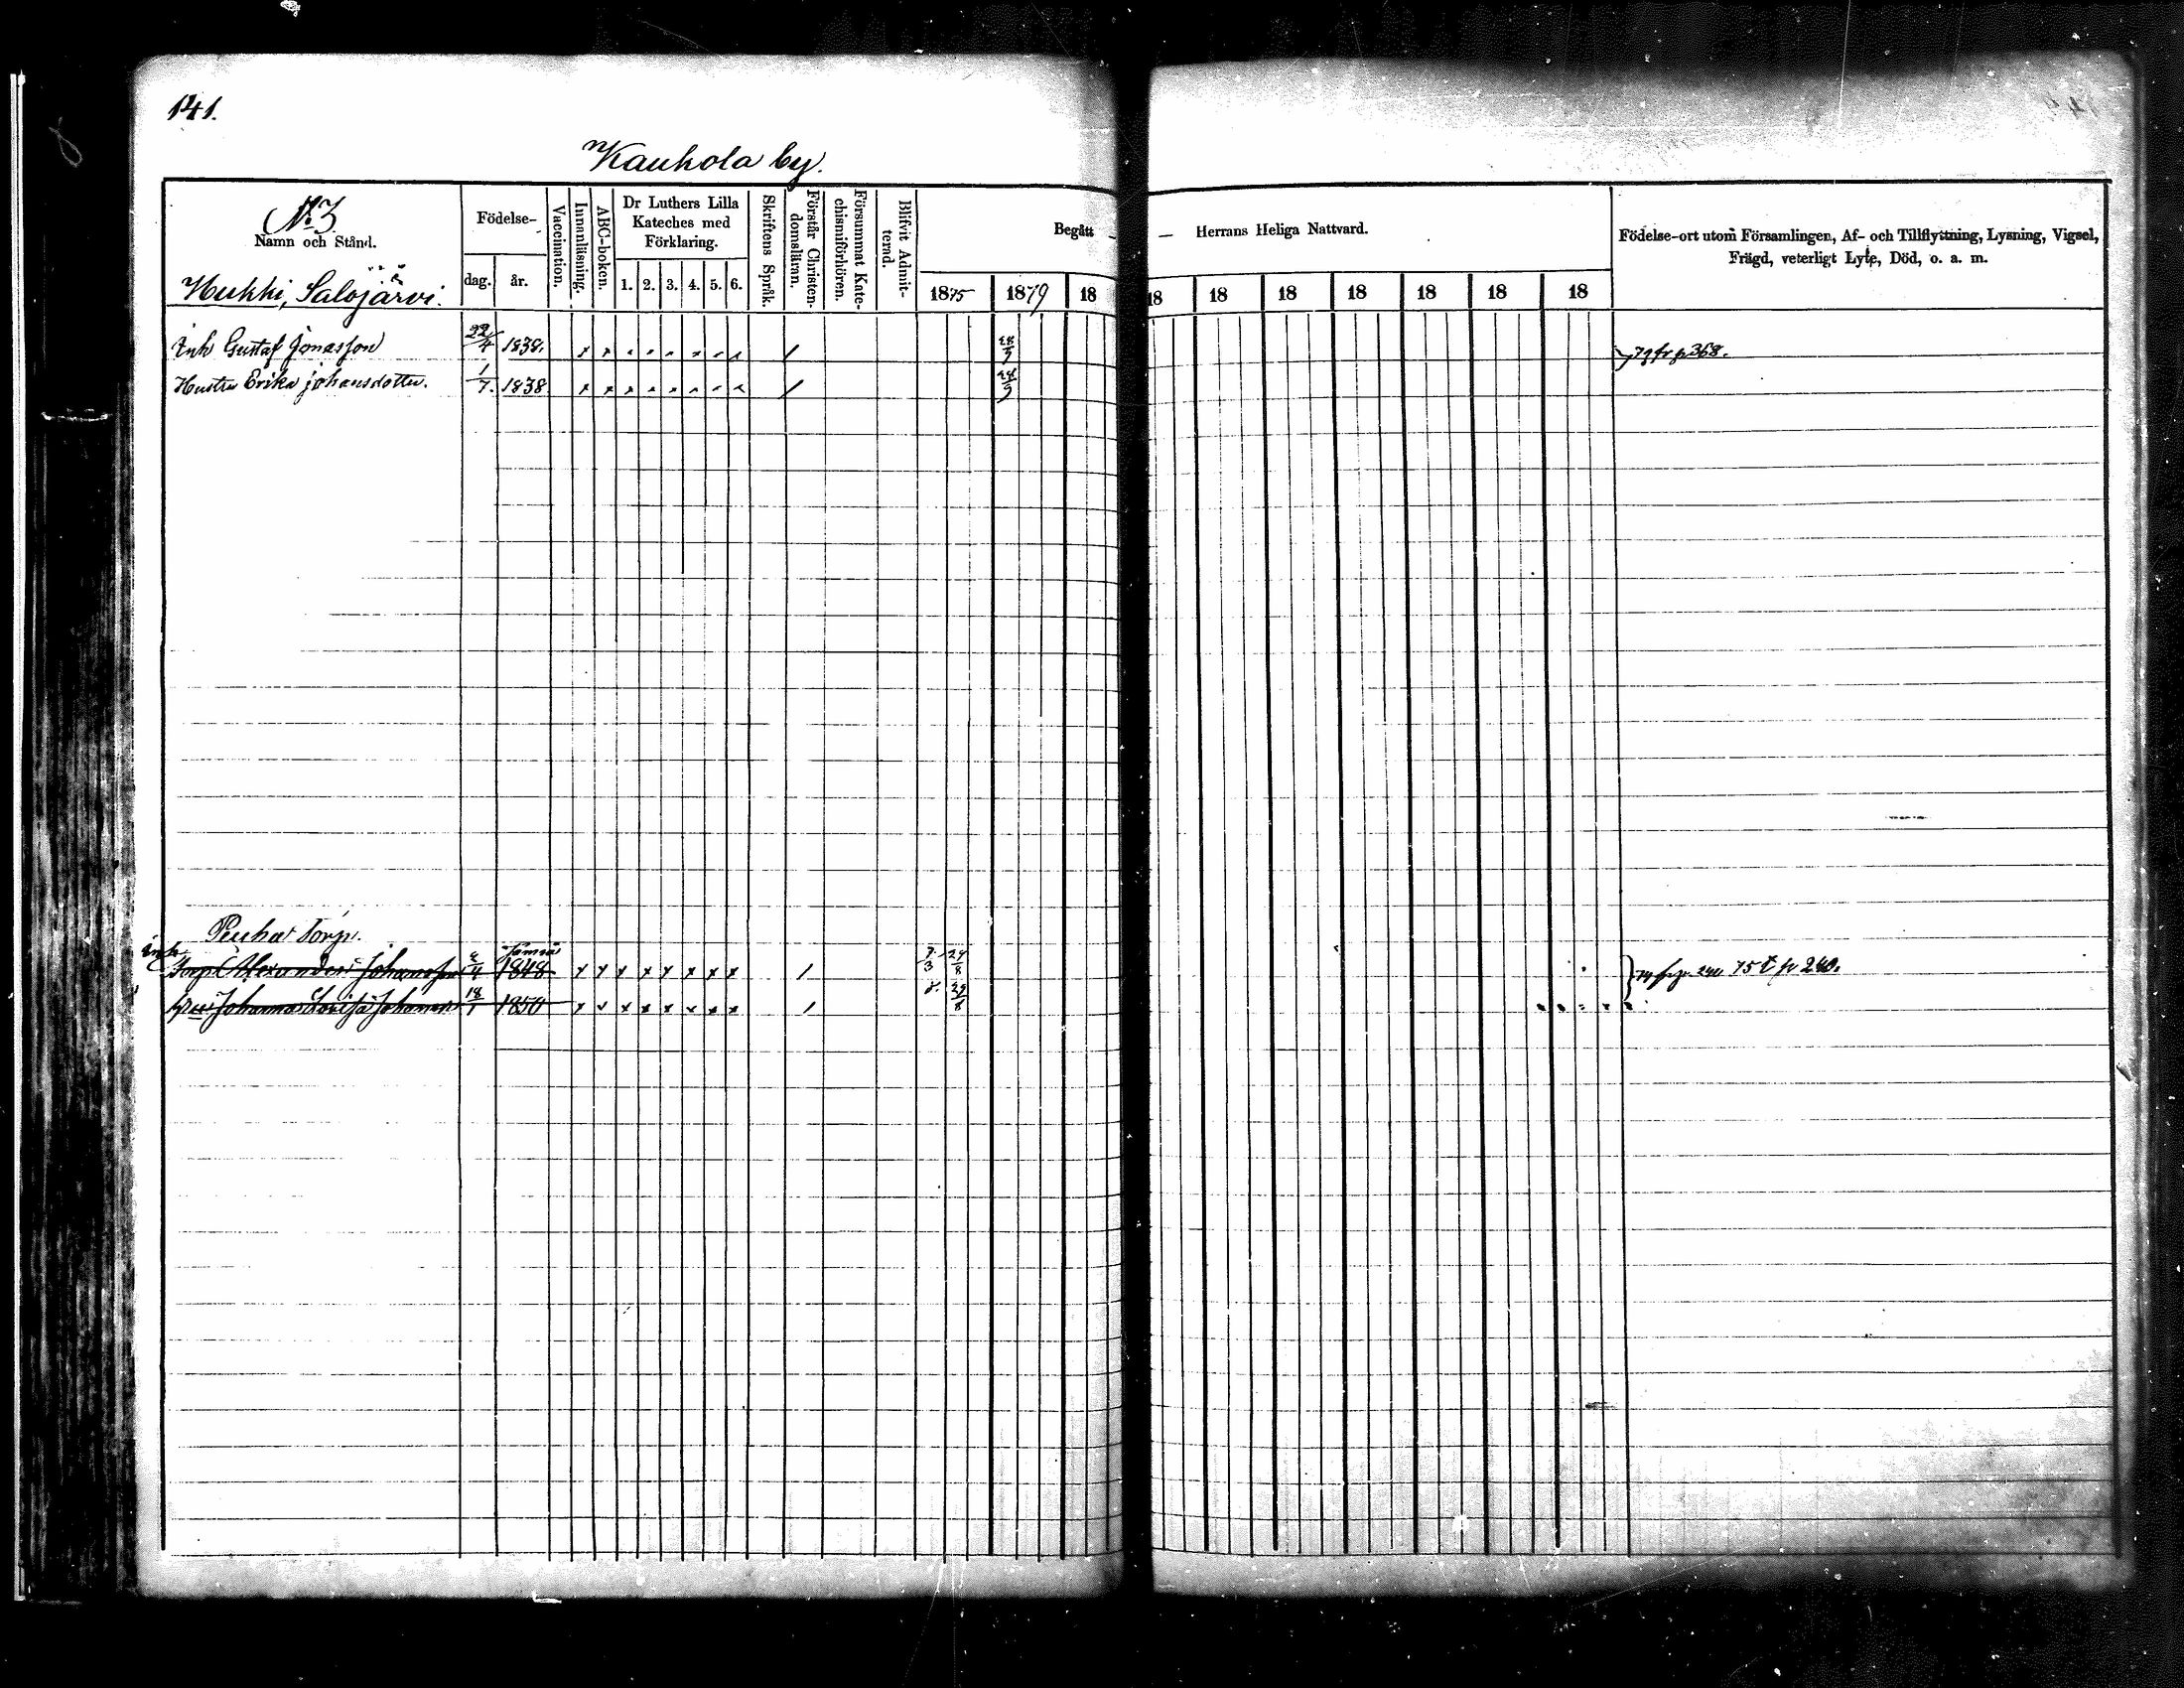 141.
Kauhola by.
No 3
Namn och Stånd.
Hukki, Salojärvi.
Födelse-
dag. år.
Vaccination.
Innanläsning.
ABC-boken.
Dr Luthers Lilla Kateches med Förklaring.
1. 2. 3. 4. 5. 6.
Skriftens Språk.
Förstår Christendomsläran.
Försummat Katechismiförhören.
Blifvit Admitterad.
Begått — Herrans Heliga Nattvard.
1875 1879 18 18 18 18 18 18 18 18
Födelse-ort utom Församlingen, Af- och Tillflyttning, Lysning, Vigsel,
Frägd, veterligt Lyte, Död, o. a. m.
Inh Gustaf Jonasson 22/4 1838. 28/9 79 fr p 368.
Hustru Erika Johansdotter. 1/7. 1838 28/9
Penha Torp.
Inh Jämsä
Torp Alexander Johansson 1848 24/8 240 75 t p 240.
Johanna Lovisa Johansd 18/1 1850 29/8